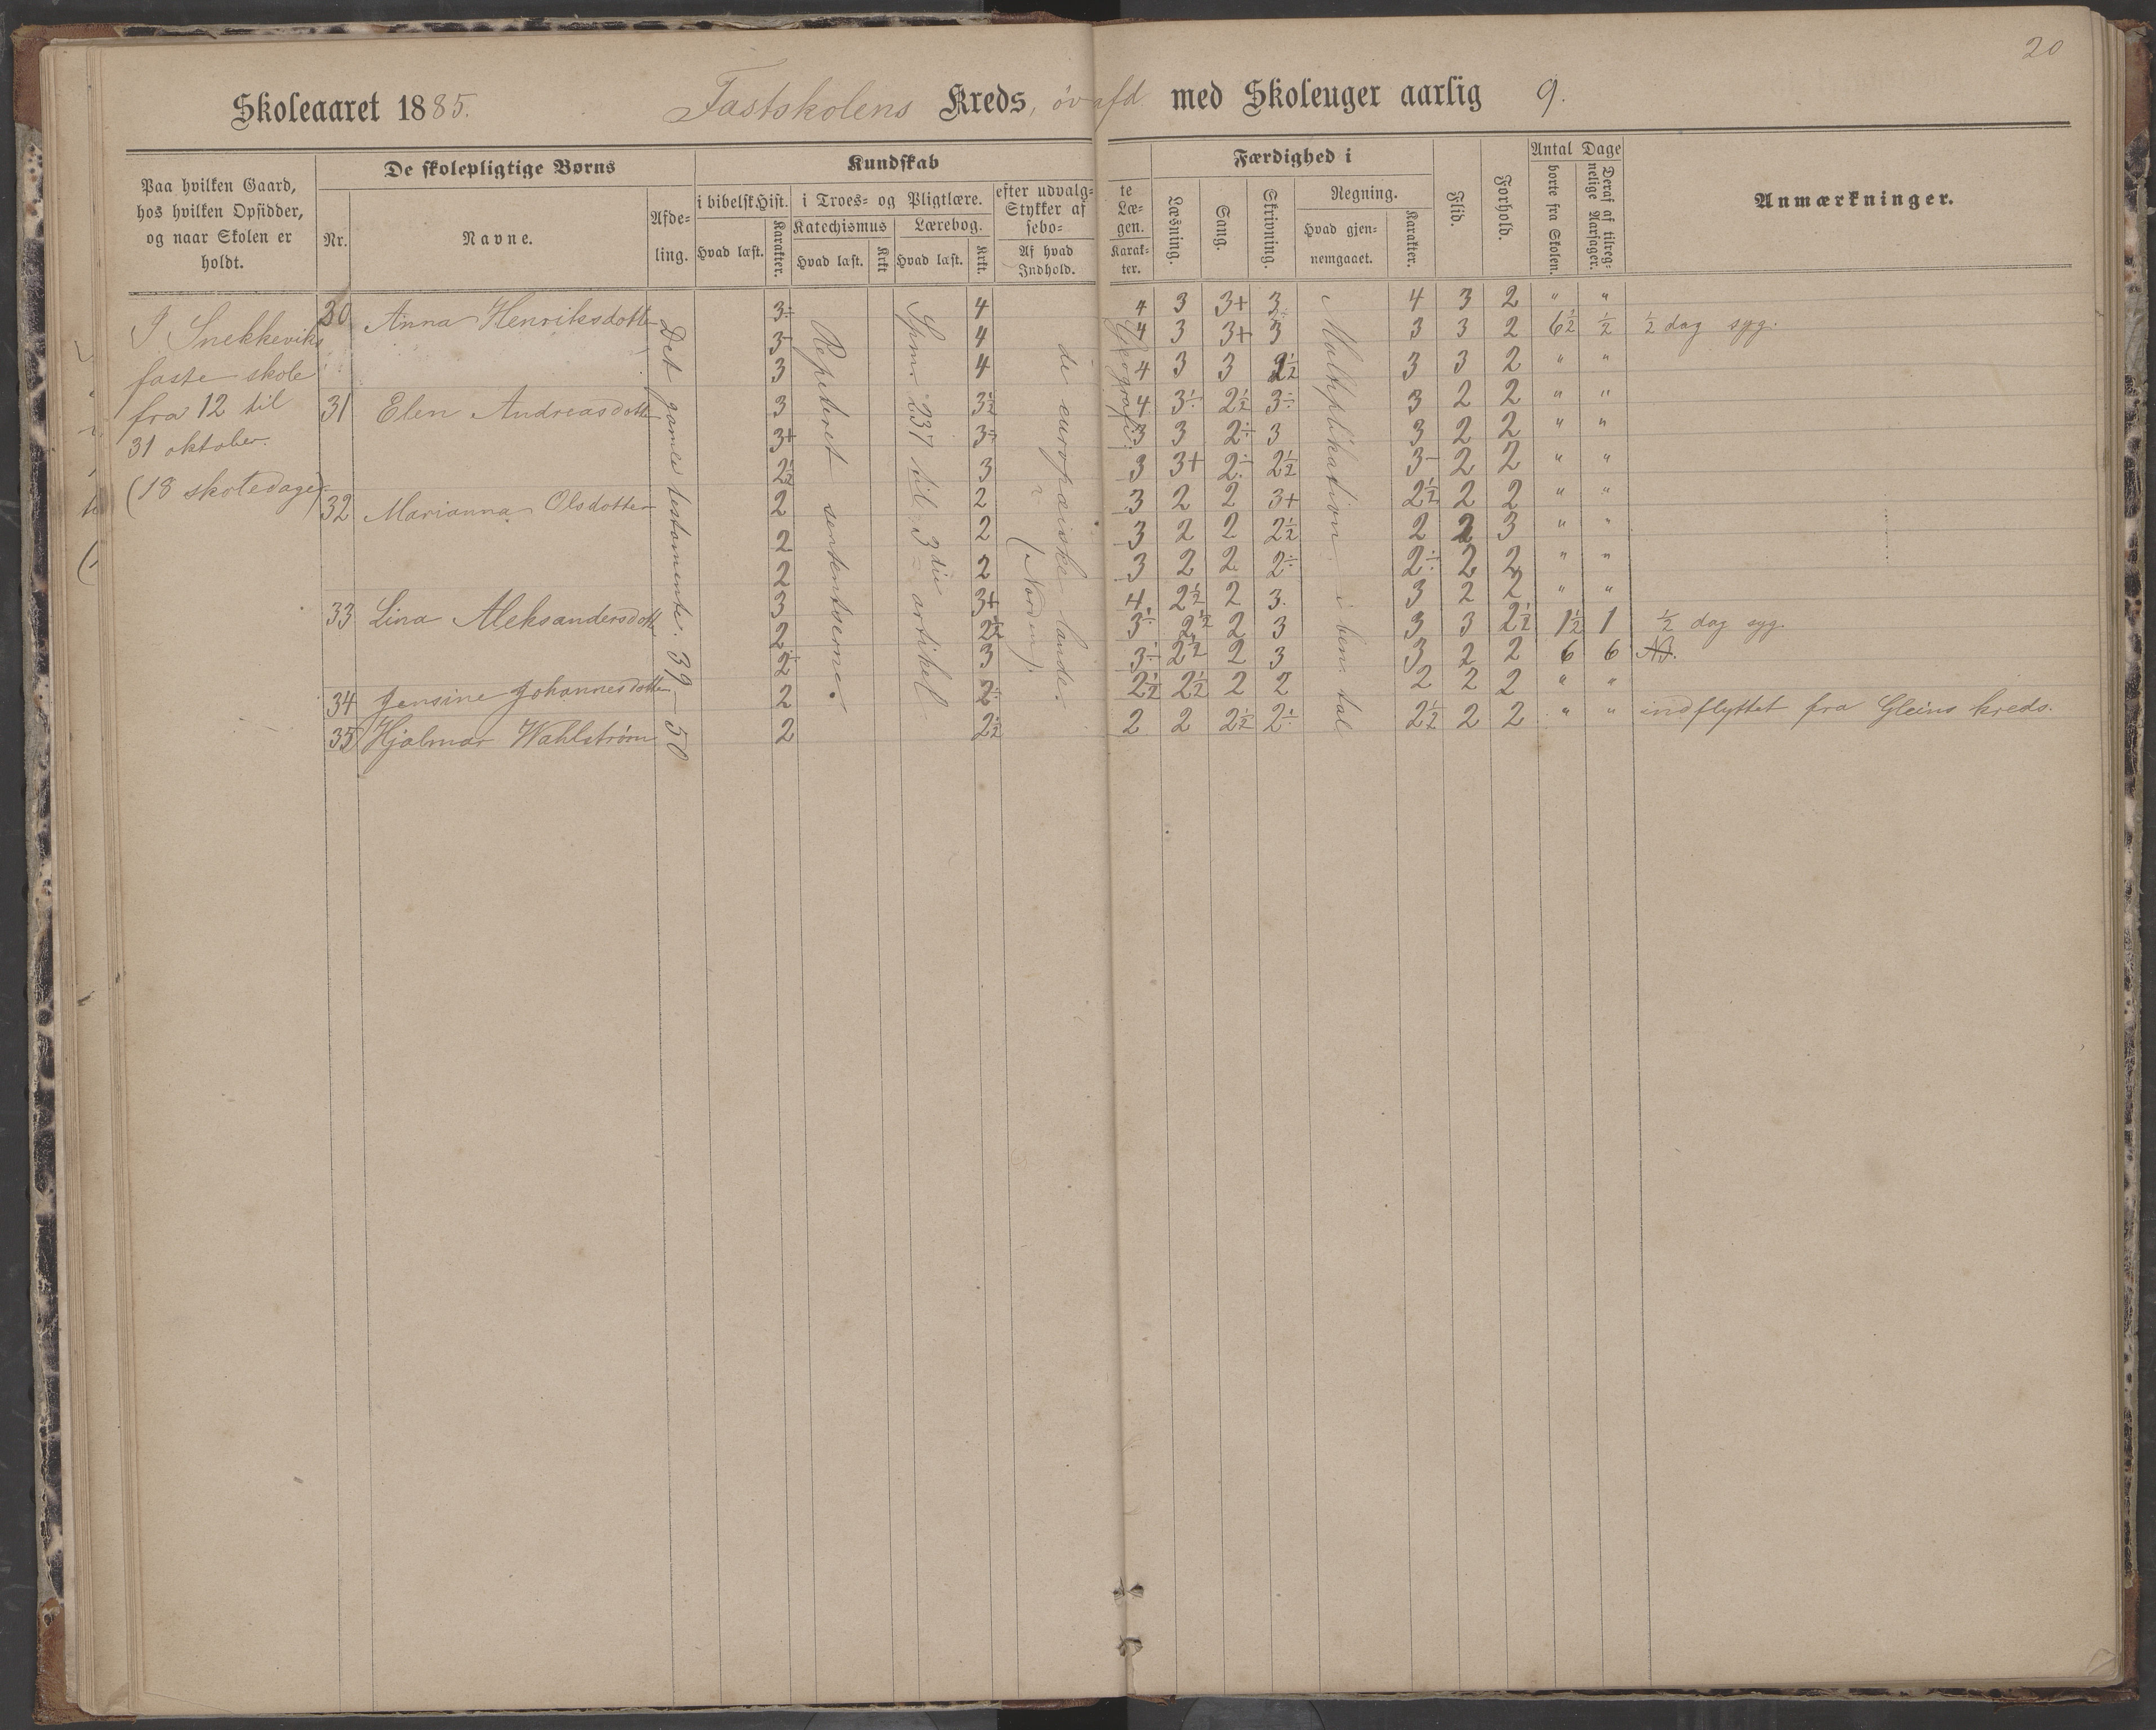 20
Skoleaaret 1885. Fastskolens Kreds, öv afd med Skoleuger aarlig 9.
Paa hvilken Gaard, hos hvilken Opsidder, og naar Skolen er holdt.
De skolepligtige Børns
Nr.
Navne.
Afdeling.
Kundskab
i bibelsk Hist.
Hvad læst.
Karakter.
i Troes- og Pligtlære.
Katechismus
Hvad læst.
Krkt
Lærebog.
Hvad læst.
Krkt.
efter udvalg-
Stykker af
sebo-
Af hvad Indhold.
te
Læ-
gen.
Karak-
ter.
Færdighed i
Læsning.
Sang.
Skrivning.
Regning.
Hvad gjen-
nemgaaet.
Karakter.
Flid.
Forhold.
Antal Dage
borte fra Skolen.
Deraf af tilreg-
nelige Aarsager.
Anmærkninger.
I Snekkeviks
faste skole
fra 12 til
31 oktober.
(18 skoledage)
Det gamle testamente. 39 - 50
Repeteret sentenserne.
Spm. 237 til 3die artikel
de europæiske lande.
(Norden).
Geografi.
Multiplikation i ben. tal
30 Anna Henriksdotter 3÷ 4 4 3 3+ 3÷ 4 3 2 " "
3- 4 4 3 3+ 3 3 3 2 6½ ½ ½ dag syg.
3 4 4 3 3 2½ 3 3 2 " "
31 Elen Andreasdotter 3 3½ 4 3÷ 2½ 3÷ 3 2 2 " "
3+ 3÷ 3 3 2÷ 3 3 2 2 " "
2½ 3 3 3+ 2÷ 2½ 3- 2 2 " "
32 Marianna Olsdotter 2 2 3 2 2 3+ 2½ 2 2 " "
2 2 3 2 2 2½ 2 2 3 " "
2 2 3 2 2 2÷ 2÷ 2 2 " "
3 3+ 4 2½ 2 3 3 2 2 " "
33 Lina Aleksandersdott 2 2½ 3÷ 2½ 2 3 3 3 2½ 1½ 1 ½ dag syg.
2÷ 3 3÷ 2½ 2 3 3 2 2 6 6
34 Jensine Johannesdotter 2 2÷ 2½ 2½ 2 2 2 2 2 " "
35 Hjalmar Wahlstrøm 2 2½ 2 2 2½ 2÷ 2½ 2 2 " " indflyttet fra Gleins kreds.